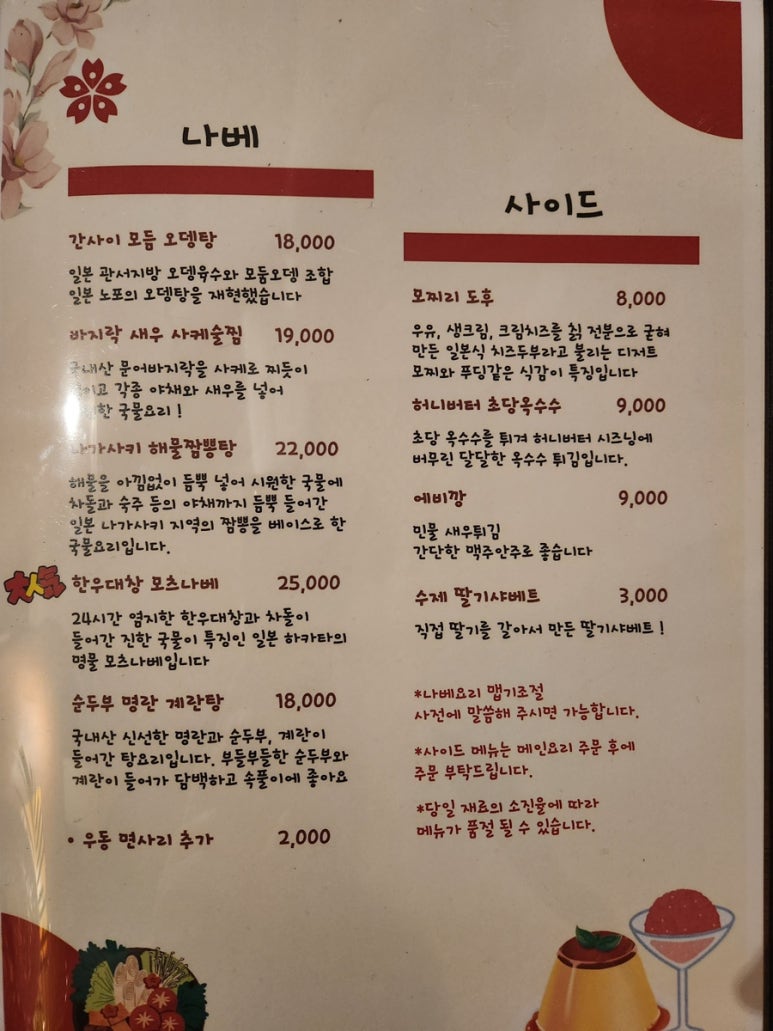 나베
간사이 모듬 오뎅탕 18,000
일본 관서지방 오뎅육수와 모둠오뎅 조합
일본 노포의 오뎅탕을 재현했습니다
바지락 새우 사케술찜 19,000
국내산 문어바지락을 사케로 찌듯이
고 각종 야채와 새우를 넣어
한 국물요리 !
나가사키 해물짬뽕탕 22,000
해물을 아낌없이 듬뿍 넣어 시원한 국물에
차돌과 숙주 등의 야채까지 듬뿍 들어간
일본 나가사키 지역의 짬뽕을 베이스로 한
국물요리입니다.
大人気 한우대창 모츠나베 25,000
24시간 염지한 한우대창과 차돌이
들어간 진한 국물이 특징인 일본 하카타의
명물 모츠나베입니다
순두부 명란 계란탕 18,000
국내산 신선한 명란과 순두부, 계란이
들어간 탕요리입니다. 부들부들한 순두부와
계란이 들어가 담백하고 속풀이에 좋아요
• 우동 면사리 추가 2,000
사이드
모찌리 도후 8,000
우유, 생크림, 크림치즈를 칡 전분으로 굳혀
만든 일본식 치즈두부라고 불리는 디저트
모찌와 푸딩같은 식감이 특징입니다
허니버터 초당옥수수 9,000
초당 옥수수를 튀겨 허니버터 시즈닝에
버무린 달달한 옥수수 튀김입니다.
에비깡 9,000
민물 새우튀김
간단한 맥주안주로 좋습니다
수제 딸기샤베트 3,000
직접 딸기를 갈아서 만든 딸기샤베트 !
*나베요리 맵기조절
사전에 말씀해 주시면 가능합니다.
*사이드 메뉴는 메인요리 주문 후에
주문 부탁드립니다.
*당일 재료의 소진율에 따라
메뉴가 품절 될 수 있습니다.